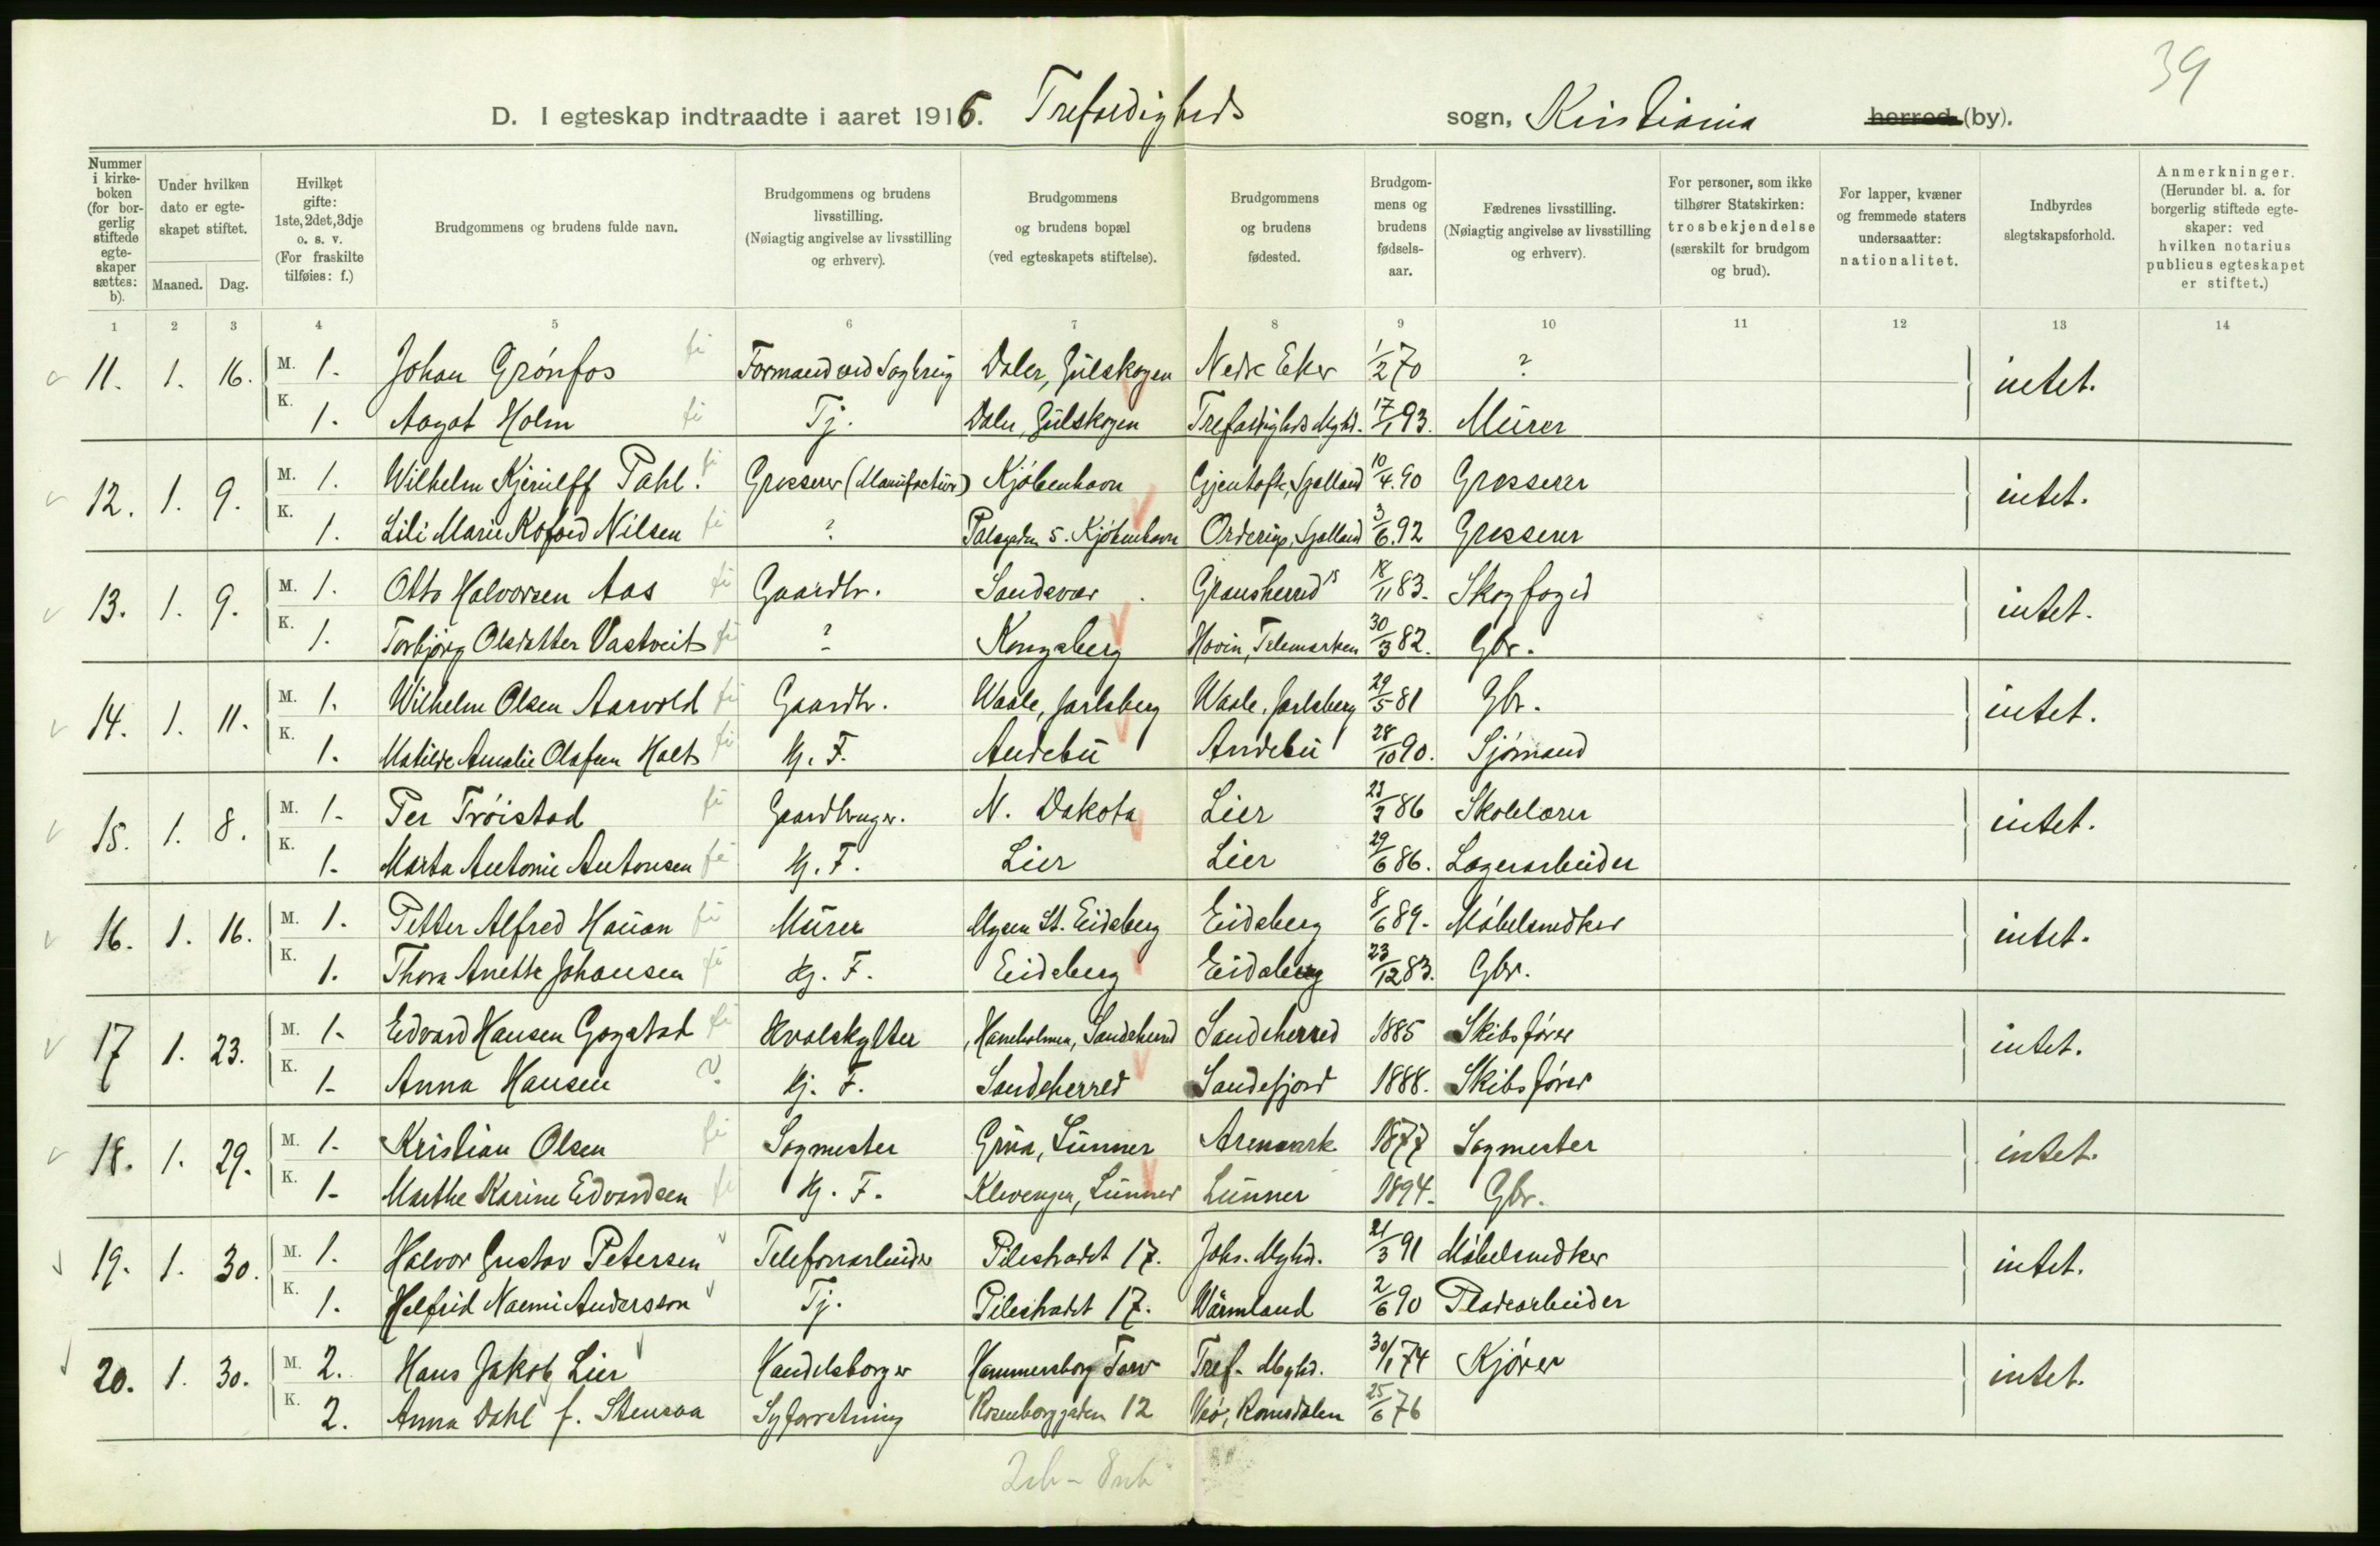 39
D. I egteskap indtraadte i aaret 1916. Trefoldigheds sogn, Kristiania herred (by).
Nummer i kirkeboken (for borgerlig stiftede egteskaper sættes: b).
Under hvilken dato er egteskapet stiftet.
Maaned. Dag.
Hvilket gifte: 1ste, 2det, 3dje o. s. v. (For fraskilte tilføies: f.)
Brudgommens og brudens fulde navn.
Brudgommens og brudens livsstilling. (Nøiagtig angivelse av livsstilling og erhverv).
Brudgommens og brudens bopæl (ved egteskapets stiftelse).
Brudgommens og brudens fødested.
Brudgommens og brudens fødselsaar.
Fædrenes livsstilling. (Nøiagtig angivelse av livsstilling og erhverv).
For personer, som ikke tilhører Statskirken: trosbekjendelse (særskilt for brudgom og brud).
For lapper, kvæner og fremmede staters undersaatter: nationalitet.
Indbyrdes slegtskapsforhold.
Anmerkninger. (Herunder bl. a. for borgerlig stiftede egteskaper: ved hvilken notarius publicus egteskapet er stiftet.)
1 2 3 4 5 6 7 8 9 10 11 12 13 14
11. 1. 16. M. 1. Johan Grönfos Formand ved Sagbrug Daler, Gulskogen Nedre Eker 1/2 70 ? intet.
K. 1. Aagot Holm Tj. Daler, Gulskogen Trefoldigheds Mghd. 17/1 93. Murer
12. 1. 9. M. 1. Wilhelm Kjerulff Pahl. Grosserer (Manufactur) Kjöbenhavn Gjentofte, Sjælland 10/4 90 Grosserer intet.
K. 1. Lili Marie Kofoed Nilsen ? 5. Kjöbenhavn Ordrup, Sjælland 3/6 92 Grosserer
13. 1. 9. M. 1. Otto Halvorsen Aas Gaardbr. Sandsvær Gransherred 18/11 83. Skogfoged intet.
K. 1. Torbjörg Olsdatter Vastveit ? Kongsberg Hovin, Telemarken 30/3 82. Gbr.
14. 1. 11. M. 1. Wilhelm Olsen Aarvold Gaardbr. Waale, Jarlsberg Waale, Jarlsberg 29/5 81 Gbr. intet.
K. 1. Matilde Amalie Olafsen Holt Hj. F. Andebu Andebu 28/10 90. Sjömand
15. 1. 8. M. 1. Per Tröistad Gaardbruger. N. Dakota Lier 86 Skolelærer intet.
K. 1. Marta Antonie Antonsen Hj. F. Lier Lier 29/6 86. Lagerarbeider
16. 1. 16. M. 1. Petter Alfred Hauan Murer Mysen St. Eidsberg Eidsberg 8/6 89. Möbelsnedker intet.
K. 1. Thora Anette Johansen Hj. F. Eidsberg Eidsberg 23/12 83. Gbr.
17 1. 23. M. 1. Edvard Hansen Gogstad Hvalskytter Haneholmen, Sandeherred Sandeherred 1885 Skibsförer intet.
K. 1. Anna Hansen Hj. F. Sandeherred Sandefjord 1888. Skibsförer
18. 1. 29. M. 1. Kristian Olsen Sagmester Grua, Lunner Aremark 1877 Sagmester intet.
K. 1. Marthe Karine Edvardsen Hj. F. Klevengen, Lunner Lunner 1894. Gbr.
19. 1. 30. M. 1. Halvor Gustav Petersen Telefonarbeider Pilestrædet 17. Johs. Mghd. 21/3 91 Möbelsnedker intet.
K. 1. Helfrid Naemi Andersson Tj. Pilestrædet 17. Wärmland 2/6 90 Pladearbeider
20. 1. 30. M. 2. Hans Jakob Lier Handelsborger Hammersborg Torv Tref. Mghd. 30/1 74 Kjörer intet.
K. 2. Anna Dahl f. Stensaa Syforretning Rosenborggaden 12 Veö, Romsdalen 25/6 76